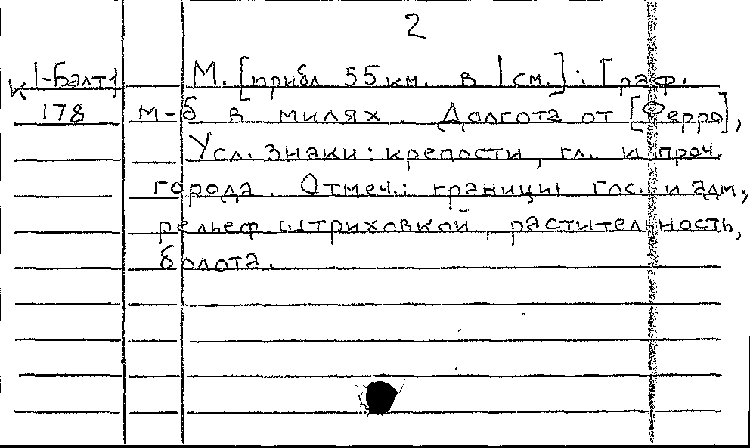 2
К 1-Балт1 М. [прибл 55 км. в 1 см.] : Граф.
178 м-б в милях. Долгота от [Ферро],
Усл. знаки: крепости, гл. и проч.
города. Отмеч.: границы гос. и адм.,
рельеф штриховкой, растительность,
болота.